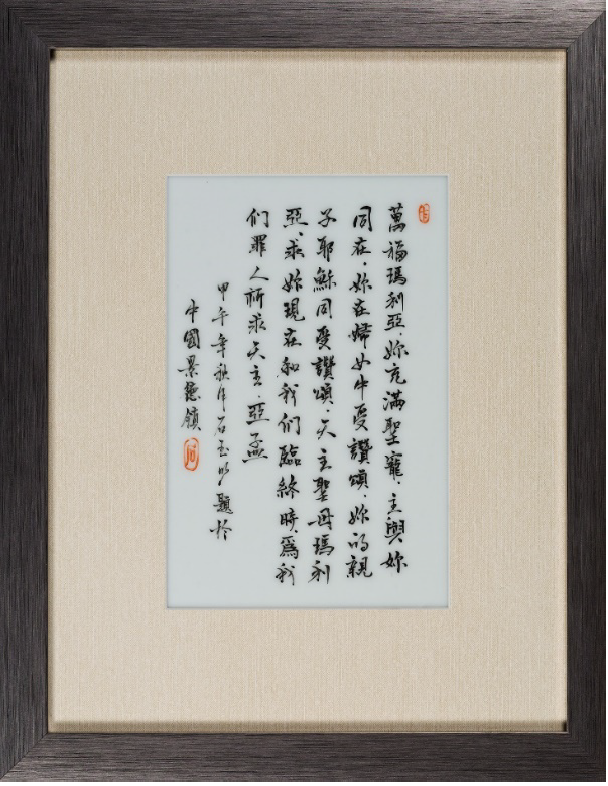 萬福瑪利亞，妳充滿聖寵，主與妳
同在，妳在婦女中受讚頌，妳的親
子耶穌同受讚頌，天主聖母瑪利
亞，求妳現在和我們臨終時，為我
们罪人祈求天主，亞孟
甲午年秋月石玉明題於
中國景德鎮